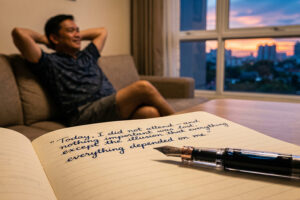 "Today, I did not attend – and
nothing important was lost
except the illusion that everything
everything depended on me